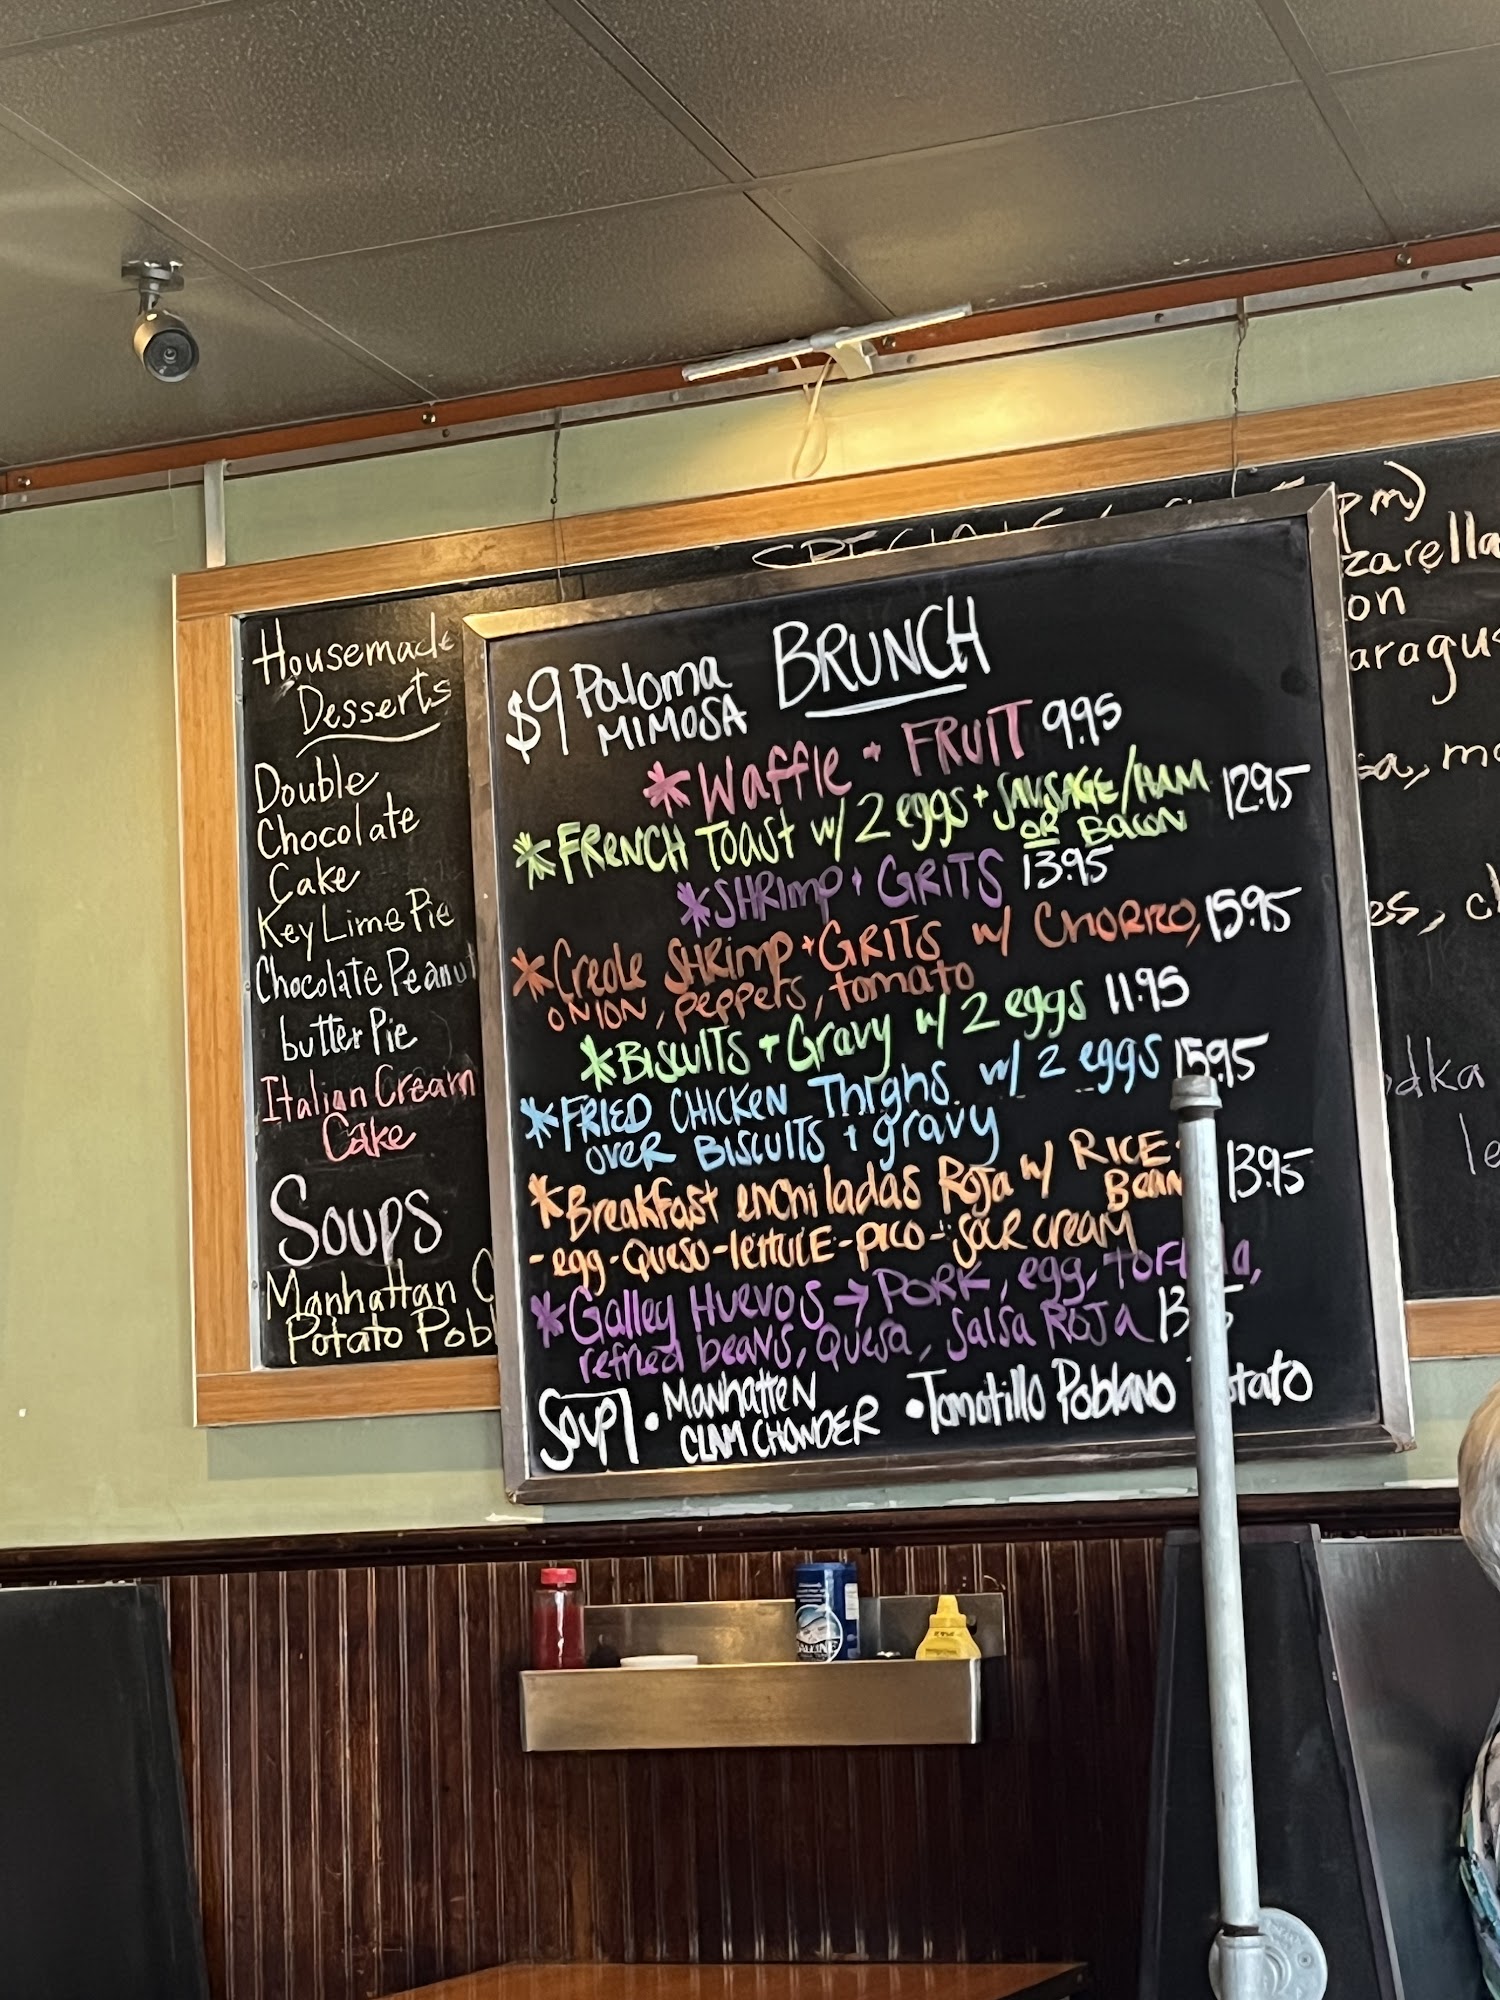 Housemade
Desserts
Double
Chocolate
Cake
Key Lime Pie
Chocolate Peanut
butter Pie
Italian Cream
Cake
Soups
Manhattan
Potato
$9 Paloma
MIMOSA
BRUNCH
*Waffle + FRUIT 9.95
*FRENCH TOAST w/ 2 eggs + SAUSAGE/HAM 12.95
OR BACON
*SHRIMP + GRITS 13.95
*Creole SHRIMP + GRITS w/ CHORIZO, 15.95
ONION, peppers, tomato
*BISCUITS + Gravy w/ 2 eggs 11.95
*FRIED CHICKEN Thighs w/ 2 eggs 15.95
OVER BISCUITS + gravy
*Breakfast enchiladas Roja w/ RICE
13.95
-egg-Queso-lettuce-pico-sour cream
*Galley Huevos → PORK, egg,
refried beans, Quesa, Salsa ROJA
Soup
• Manhatten
CLAM CHOWDER
• Tomotillo Poblano
SPECIALS
pm)
SALINE